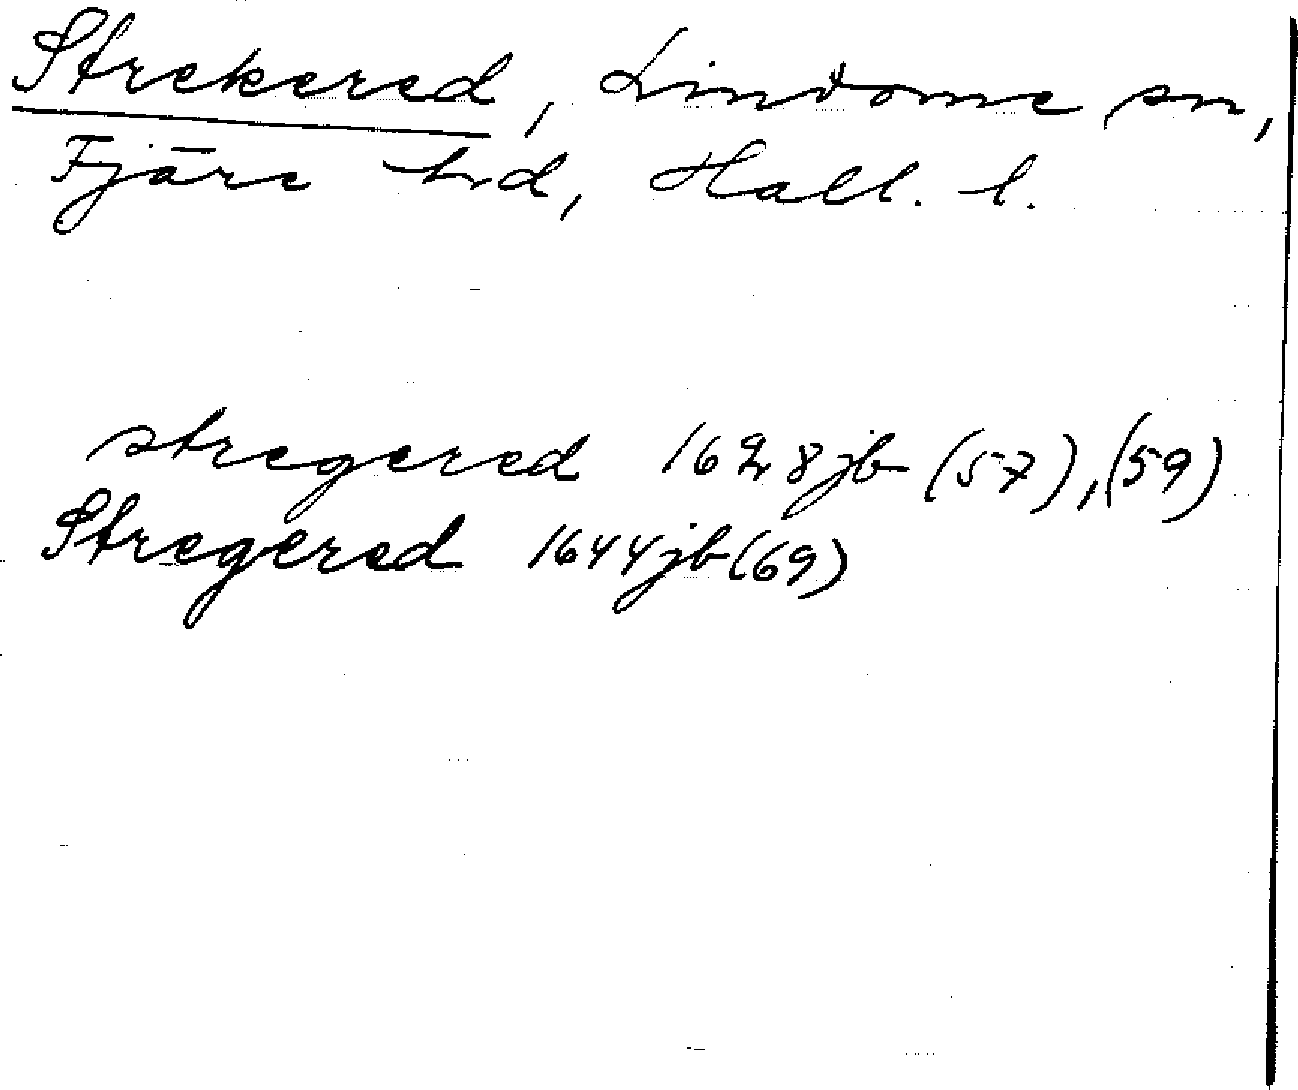 Strekered, Lindome sn,
Fjäre hd, Hall. l.
stregered 1628 jb (57), (59)
Stregered 1644 jb (69)